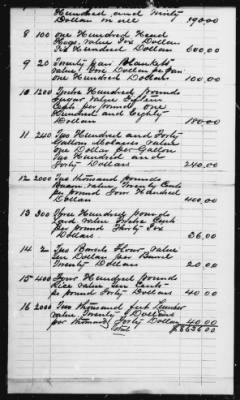 Hundred and Ninty
Dollars in all 190.00
8 100 One Hundred Head
Hogs, value Six Dollars
Six Hundred Dollars 600.00
9 20 Twenty pair Blankets
value Five Dollars per pair
One Hundred Dollars 100.00
10 1200 Twelve Hundred pounds
Sugar value Fifteen
Cents per pound, One
Hundred and Eighty
Dollars 180.00
11 240 Two Hundred and Forty
Gallons Molasses Value
One Dollar per Gallon
Two Hundred and
Forty Dollars 240.00
12 2000 Two thousand pounds
Bacon value Twenty Cents
per pound Four Hundred
Dollars 400.00
13 300 Three Hundred pounds
Lard value Twelve Cents
per pound Thirty Six
Dollars 36.00
14 2 Two Barrels Flour value
Ten Dollars per Barrel
Twenty Dollars 20.00
15 400 Four Hundred pounds
Rice value Ten Cents
per pound Forty Dollars 40.00
16 2000 Two thousand feet Lumber
value Twenty Dollars
per thousand, Forty Dollars 40.00
Total